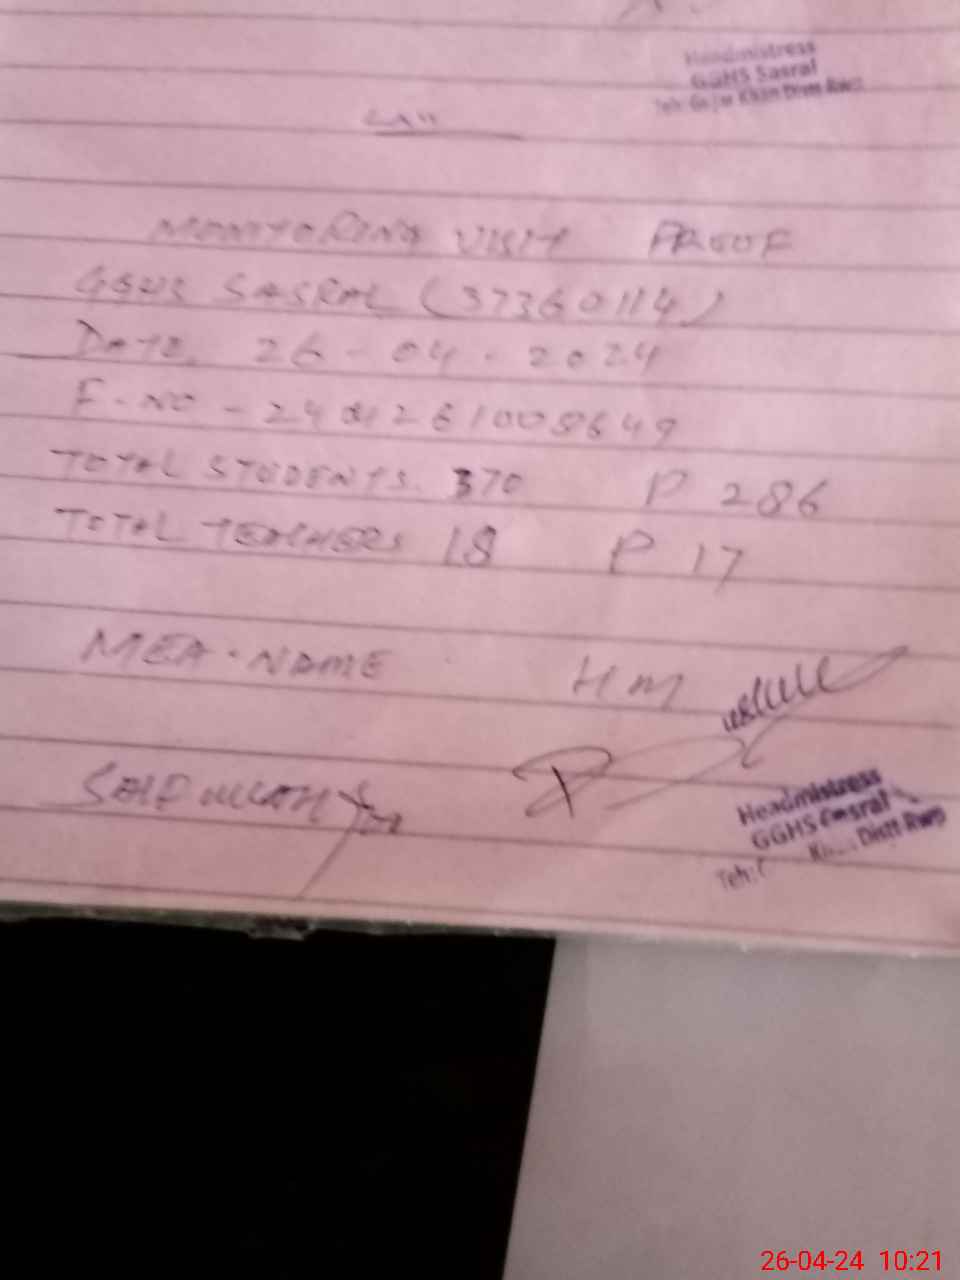 Headmistress
GGHS Sasral
Teh: Gujar Khan Distt Rwp
MONITORING VISIT PROOF
GGHS SASRAL (37360114)
DATE. 26-04-2024
TOTAL STUDENTS. 370 P 286
TOTAL TEACHERS 18 P 17
MEA-NAME HM
SAIFULLAH
Headmistress
GGHS Sasral
Teh: Khan Distt Rwp
26-04-24 10:21